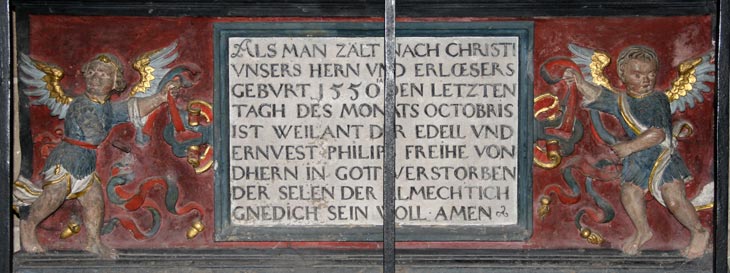 ALS MAN ZALT NACH CHRISTI
VNSERS HERN VND ERLŒSERS
GEBVRT 1550 DEN LETZTEN
TAGH DES MONATS OCTOBRIS
IST WEILANT DER EDELL VND
ERNVEST PHILIPS FREIHE VON
DHERN IN GOTT VERSTORBEN
DER SELEN DER ALMECHTICH
GNEDICH SEIN WOLL · AMEN